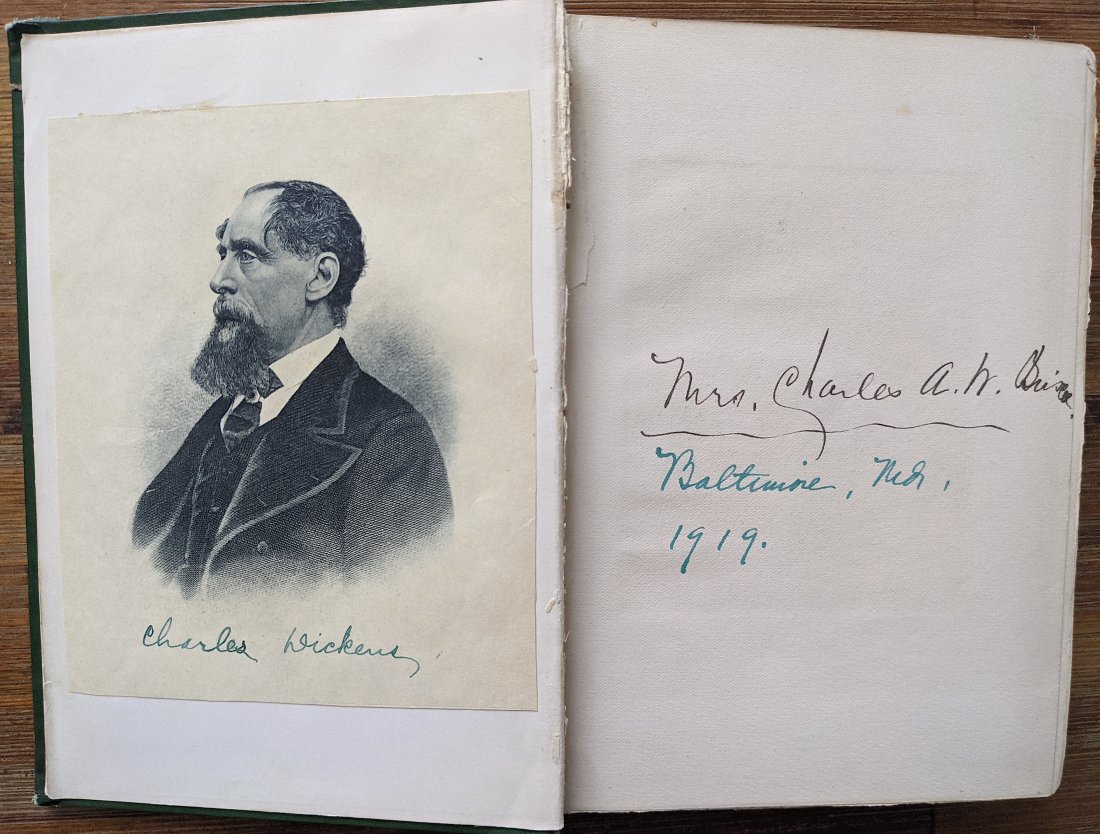 Charles Dickens,
Mrs. Charles A. W.
Baltimore, Md,
1919.